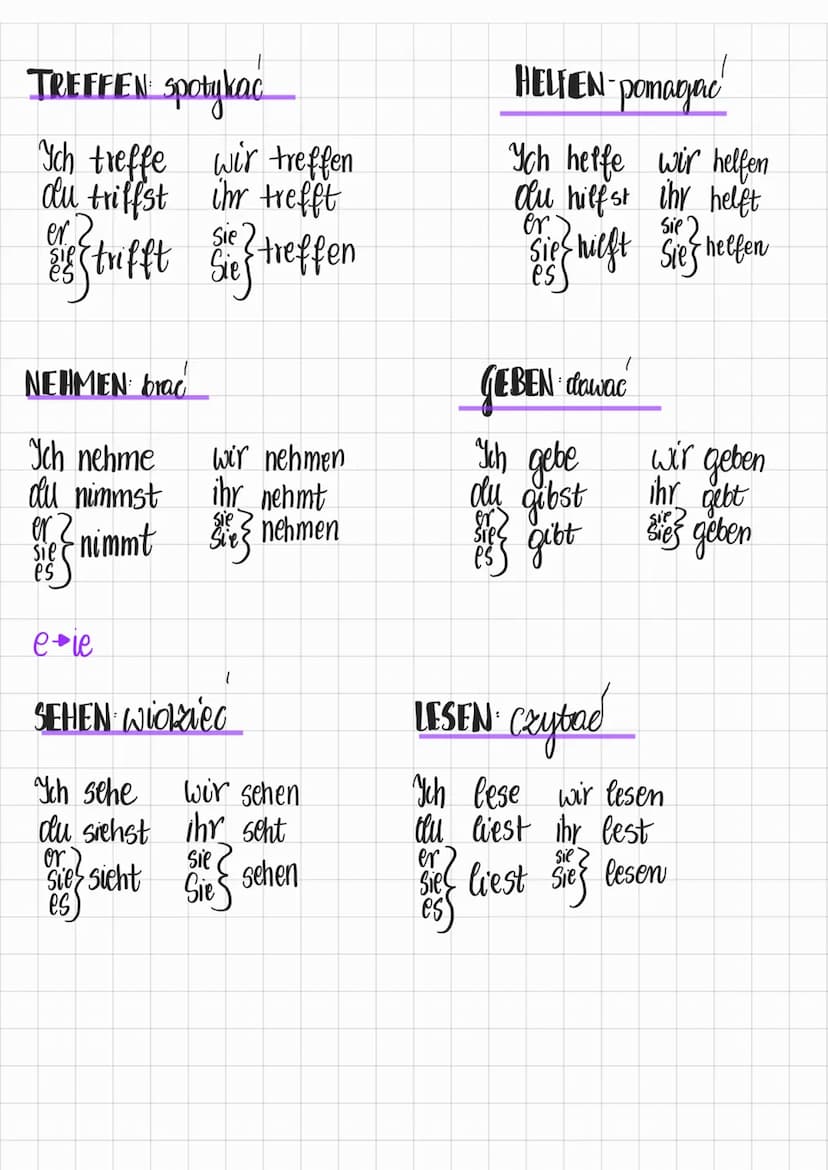 TREFFEN: spotykać
Ich treffe wir treffen
du triffst ihr trefft
er sie es } trifft sie Sie } treffen
HELFEN - pomagać
Ich helfe wir helfen
du hilfst ihr helft
er sie es } hilft sie Sie } helfen
NEHMEN: brać
Ich nehme wir nehmen
du nimmst ihr nehmt
er sie es } nimmt sie Sie } nehmen
GEBEN: dawać
Ich gebe wir geben
du gibst ihr gebt
er sie es } gibt sie Sie } geben
e→ie
SEHEN: widzieć
Ich sehe wir sehen
du siehst ihr seht
er sie es } sieht sie Sie } sehen
LESEN: czytać
Ich lese wir lesen
du liest ihr lest
er sie es } liest sie Sie } lesen